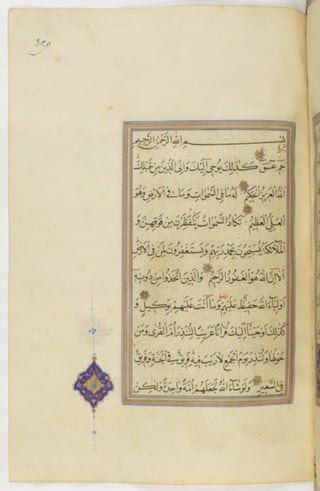 390
بسم الله الرحمن الرحيم
حم عسق كذلك يوحي اليك والى الذين من قبلك
الله العزيز الحكيم له ما في السموات وما في الارض وهو
العلي العظيم تكاد السموات يتفطرن من فوقهن و
الملائكة يسبحون بحمد ربهم ويستغفرون لمن في الارض
الا ان الله هو الغفور الرحيم والذين اتخذوا من دونه
اولياء الله حفيظ عليهم وما انت عليهم بوكيل و
كذلك اوحينا اليك قرآنا عربيا لتنذر ام القرى ومن
حولها وتنذر يوم الجمع لا ريب فيه فريق في الجنة وفريق
في السعير ولو شاء الله لجعلهم امة واحدة ولكن